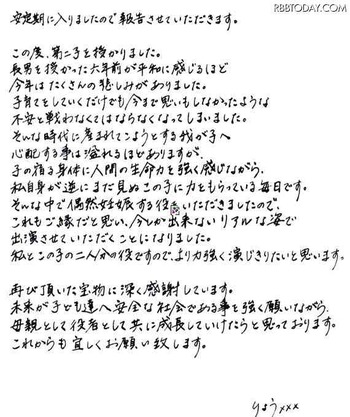 RBBTODAY.COM
安定期に入りましたので報告させていただきます。
この度、第二子を授かりました。
長男を授かった六年前が平和に感じるほど
今年はたくさんの悲しみがありました。
子育てをしていくだけでも今まで思いもしなかったような
不安と戦わなくてはならなくなってしまいました。
そんな時代に産まれてこようとする我が子へ
心配する事は溢れるほどありますが、
子の宿る身体に人間の生命力を強く感じながら、
私自身が逆にまだ見ぬこの子に力をもらっている毎日です。
そんな中で偶然妊娠する役をいただきましたので、
これもご縁だと思い、今しか出来ないリアルな姿で
出演させていただくことになりました。
私とこの子の二人分の役ですので、より力強く演じきりたいと思います。
再び頂いた宝物に深く感謝しています。
未来が子ども達へ安全な社会である事を強く願いながら、
母親として役者として共に成長していけたらと思っております。
これからも宜しくお願い致します。
りょう×××